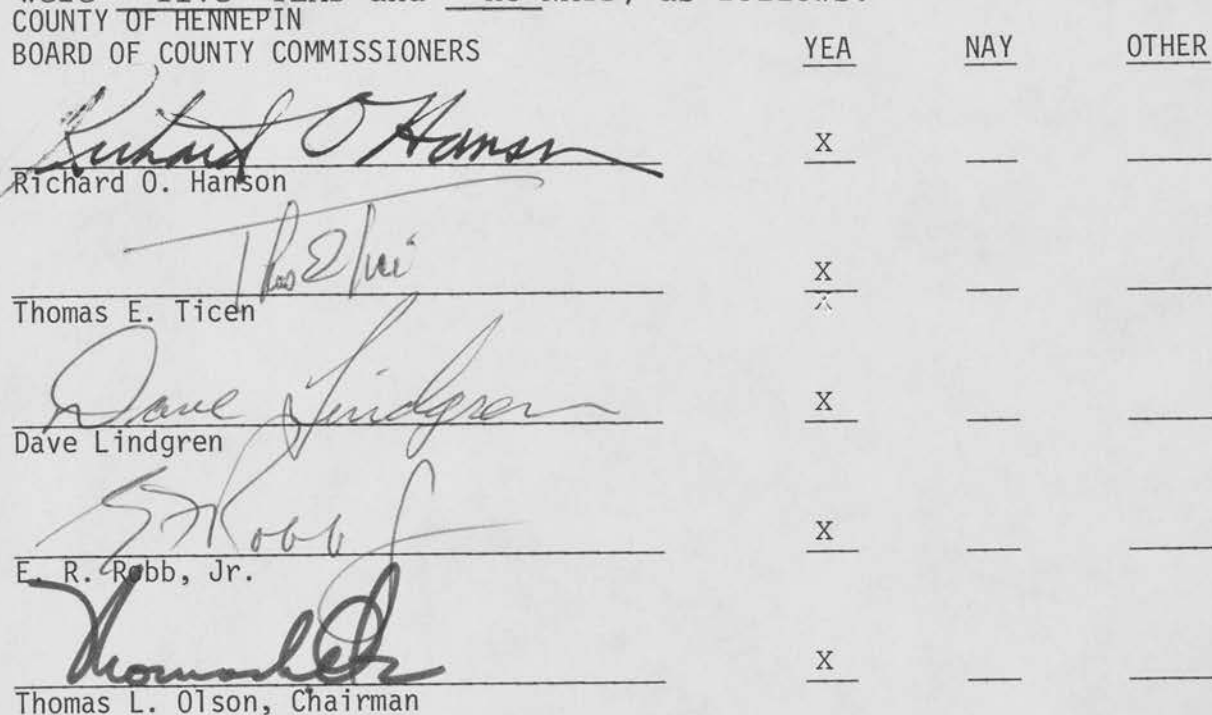 COUNTY OF HENNEPIN
BOARD OF COUNTY COMMISSIONERS YEA NAY OTHER
Richard O Hanson X
Richard O. Hanson
Thos E Tici X
Thomas E. Ticen
Dave Lindgren X
Dave Lindgren
E R Robb Jr X
E. R. Robb, Jr.
Thomas L Olson X
Thomas L. Olson, Chairman